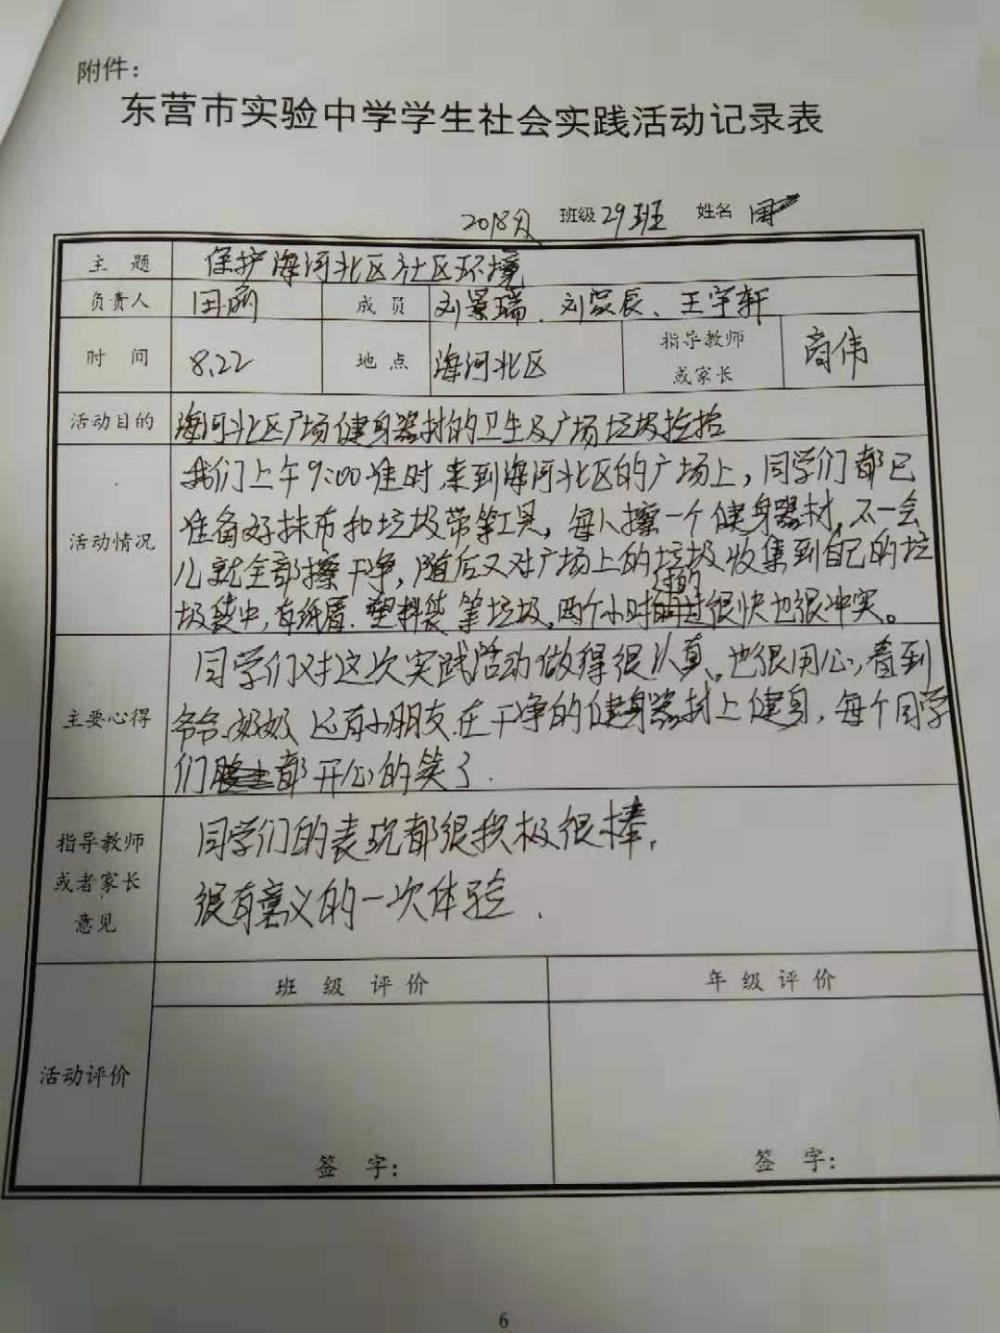 附件：
东营市实验中学学生社会实践活动记录表
2018级 班级 29班 姓名
主 题 保护海河北区社区环境
负责人 田 成 员 刘景瑞、刘宸辰、王宇轩
时 间 8.22 地 点 海河北区 指导教师或家长 商伟
活动目的 海河北区广场健身器材的卫生及广场垃圾捡拾
活动情况
我们上午9:00准时来到海河北区的广场上，同学们都已
准备好抹布和垃圾带等工具，每人擦一个健身器材，不一会
儿就全部擦干净，随后又对广场上的垃圾收集到自己的垃
圾袋中，有纸屑、塑料袋等垃圾，两个小时过的很快也很冲实。
主要心得
同学们对这次实践活动做得很认真，也很用心，看到
爷爷、奶奶还有小朋友在干净的健身器材上健身，每个同学
们都开心的笑了.
指导教师
或者家长
意见
同学们的表现都很积极很棒，
很有意义的一次体验.
班 级 评 价 年 级 评 价
活动评价
签 字： 签 字：
6